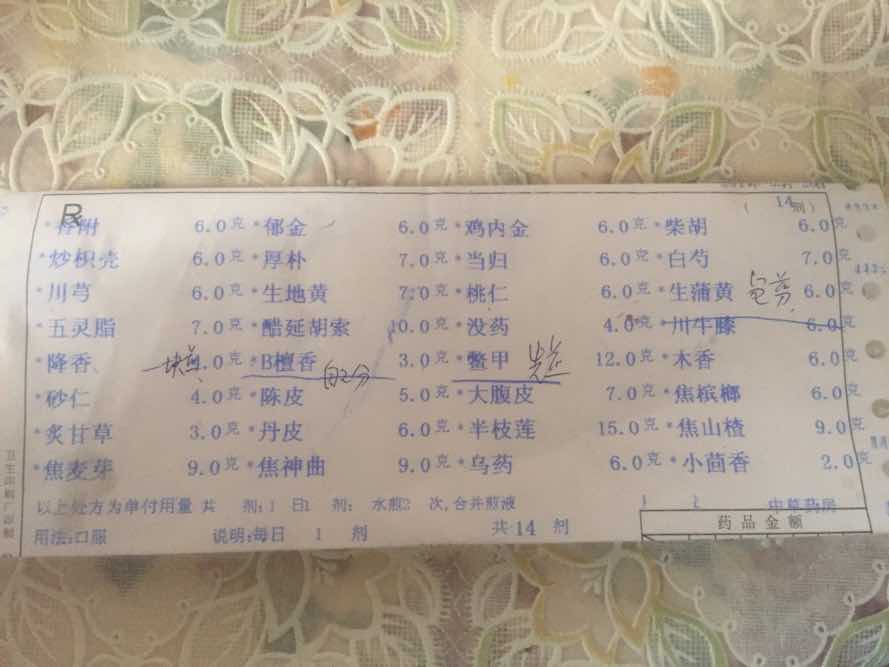 （ 14 剂）
℞
*香附 6.0克 *郁金 6.0克 *鸡内金 6.0克 *柴胡 6.0克
*炒枳壳 6.0克 *厚朴 7.0克 *当归 6.0克 *白芍 7.0克
*川芎 6.0克 *生地黄 7.0克 *桃仁 6.0克 *生蒲黄 包煎 6.0克
*五灵脂 7.0克 *醋延胡索 10.0克 *没药 4.0克 *川牛膝 6.0克
*降香 4.0克 *B檀香 3.0克 *鳖甲 先煎 12.0克 *木香 6.0克
*砂仁 4.0克 *陈皮 5.0克 *大腹皮 7.0克 *焦槟榔 6.0克
*炙甘草 3.0克 *丹皮 6.0克 *半枝莲 15.0克 *焦山楂 9.0克
*焦麦芽 9.0克 *焦神曲 9.0克 *乌药 6.0克 *小茴香 2.0克
以上处方为单付用量 共 剂:1 日1 剂: 水煎2 次,合并煎液 1 2 中草药房
用法:口服 说明:每日 1 剂 共14 剂
药品金额